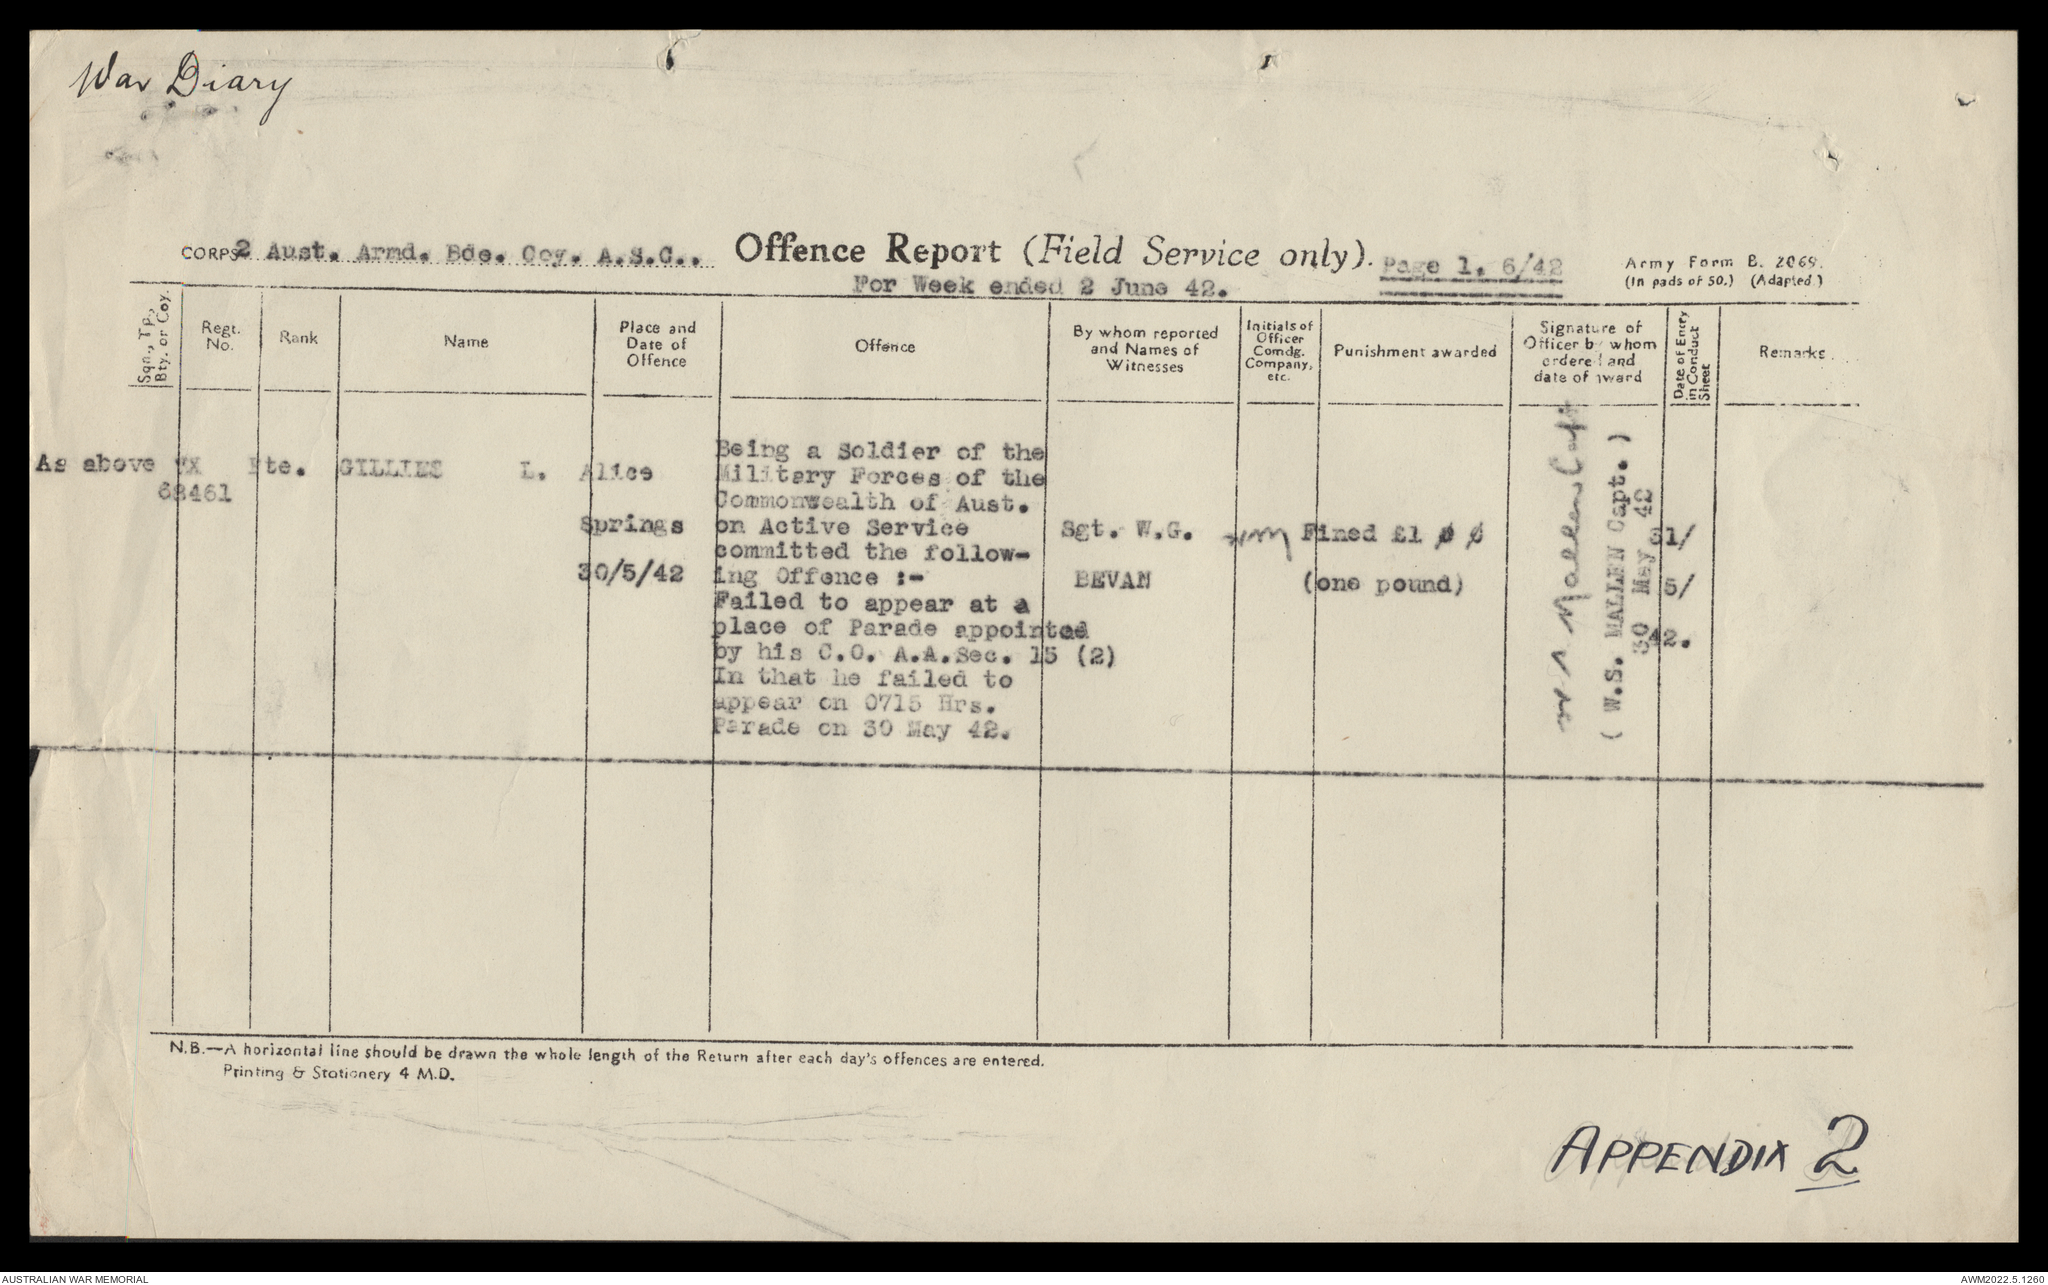 War Diary
CORPS 2 Aust. Armd. Bde. Coy. A.S.C.. Offence Report (Field Service only). Page 1. 6/42 Army Form B. 2069.
(In pads of 50.) (Adapted.)
For Week ended 2 June 42.
Sqn., Tp., Bty. or Coy.
Regt. No.
Rank
Name
Place and Date of Offence
Offence
By whom reported and Names of Witnesses
Initials of Officer Comdg. Company, etc.
Punishment awarded
Signature of Officer by whom ordered and date of award
Date of Entry in Conduct Sheet
Remarks
As above
VX
68461
Pte.
GILLIES L.
Alice
Springs
30/5/42
Being a Soldier of the
Military Forces of the
Commonwealth of Aust.
on Active Service
committed the follow-
ing Offence :-
Failed to appear at a
place of Parade appointed
by his C.O. A.A.Sec. 15 (2)
In that he failed to
appear on 0715 Hrs.
Parade on 30 May 42.
Sgt. W.G.
BEVAN
Fined £1 0 0
(one pound)
W S Mallen Capt
( W.S. MALLEN Capt. )
30 May 42
31/
5/
42.
N.B.—A horizontal line should be drawn the whole length of the Return after each day's offences are entered.
Printing & Stationery 4 M.D.
APPENDIX 2
AUSTRALIAN WAR MEMORIAL
AWM2022.5.1260